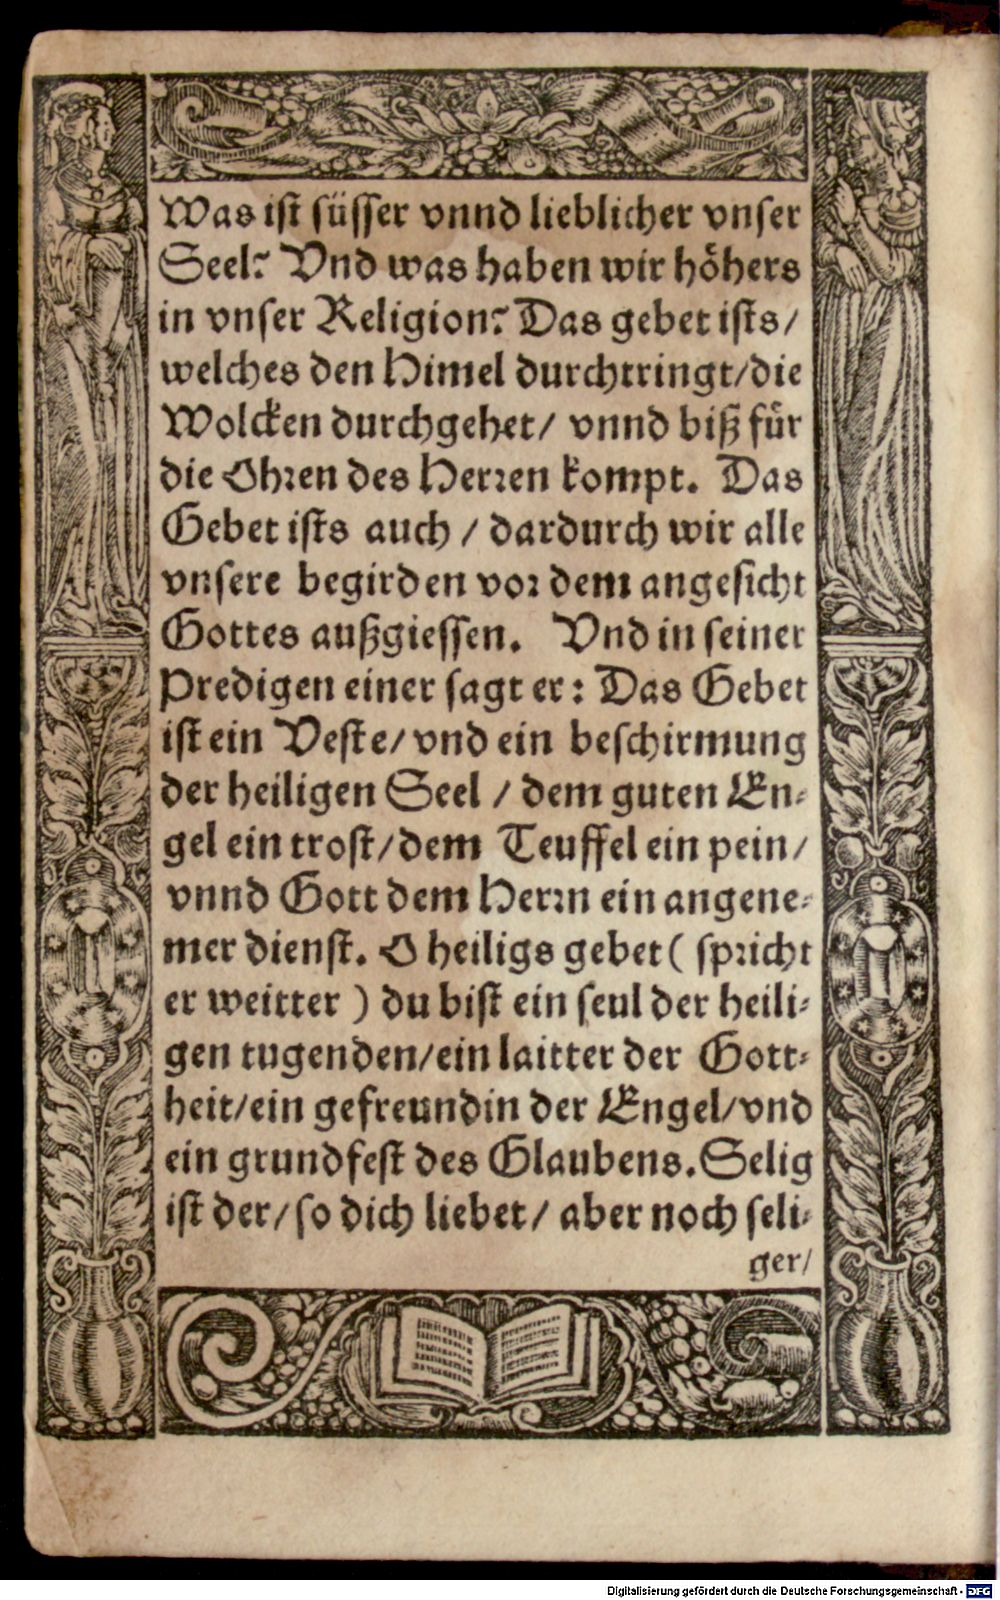 Was ist süsser vnnd lieblicher vnser
Seel? Vnd was haben wir höhers
in vnser Religion? Das gebet ists/
welches den Himel durchtringt/die
Wolcken durchgehet/ vnnd biß für
die Ohren des Herren kompt. Das
Gebet ists auch / dardurch wir alle
vnsere begirden vor dem angesicht
Gottes außgiessen. Vnd in seiner
Predigen einer sagt er: Das Gebet
ist ein Veste/ vnd ein beschirmung
der heiligen Seel / dem guten En-
gel ein trost/dem Teuffel ein pein/
vnnd Gott dem Herrn ein angene-
mer dienst. O heiligs gebet ( spricht
er weitter ) du bist ein seul der heili-
gen tugenden/ein laitter der Gott-
heit/ein gefreundin der Engel/vnd
ein grundfest des Glaubens. Selig
ist der/ so dich liebet/ aber noch seli-
ger/
Digitalisierung gefördert durch die Deutsche Forschungsgemeinschaft - DFG